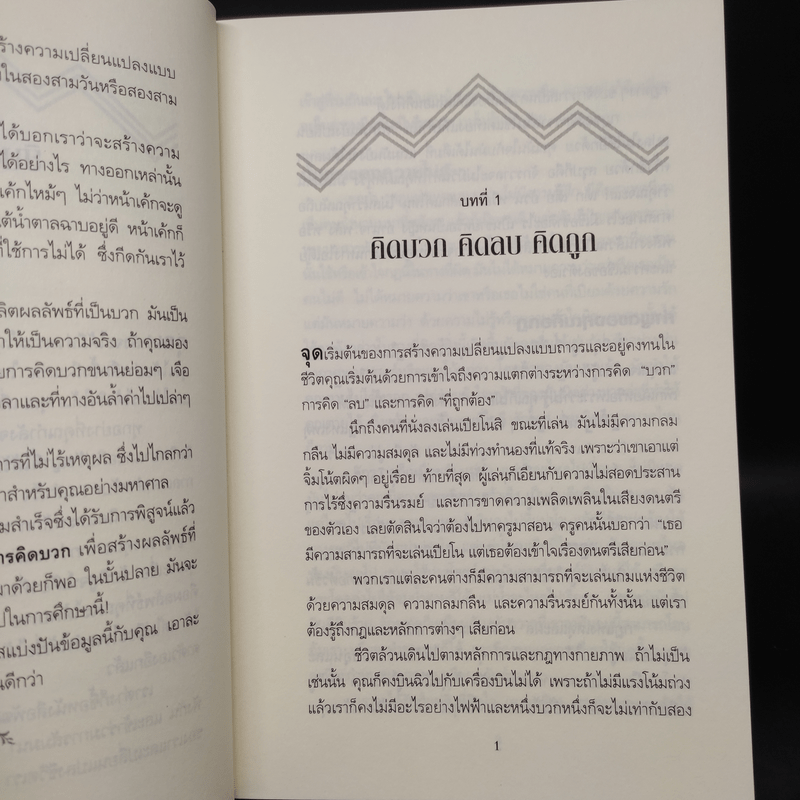 ร้างความเปลี่ยนแปลงแบบ
ในสองสามวันหรือสองสาม
ได้บอกเราว่าจะสร้างความ
ได้อย่างไร ทางออกเหล่านั้น
เค้กไหม้ๆ ไม่ว่าหน้าเค้กจะดู
ต้น้ำตาลฉาบอยู่ดี หน้าเค้กก็
ที่ใช้การไม่ได้ ซึ่งกีดกันเราไว้
ลิตผลลัพธ์ที่เป็นบวก มันเป็น
าให้เป็นความจริง ถ้าคุณมอง
ยการคิดบวกขนานย่อมๆ เจือ
ลาและที่ทางอันล้ำค่าไปเปล่าๆ
การที่ไม่ไร้เหตุผล ซึ่งไปไกลกว่า
าสำหรับคุณอย่างมหาศาล
มสำเร็จซึ่งได้รับการพิสูจน์แล้ว
ารคิดบวก เพื่อสร้างผลลัพธ์ที่
มาด้วยก็พอ ในบั้นปลาย มันจะ
ปในการศึกษานี้!
สแบ่งปันข้อมูลนี้กับคุณ เอาละ
นดีกว่า
บทที่ 1
คิดบวก คิดลบ คิดถูก
จุดเริ่มต้นของการสร้างความเปลี่ยนแปลงแบบถาวรและอยู่คงทนใน
ชีวิตคุณเริ่มต้นด้วยการเข้าใจถึงความแตกต่างระหว่างการคิด “บวก”
การคิด “ลบ” และการคิด “ที่ถูกต้อง”
นึกถึงคนที่นั่งลงเล่นเปียโนสิ ขณะที่เล่น มันไม่มีความกลม
กลืน ไม่มีความสมดุล และไม่มีท่วงทำนองที่แท้จริง เพราะว่าเขาเอาแต่
จิ้มโน้ตผิดๆ อยู่เรื่อย ท้ายที่สุด ผู้เล่นก็เอียนกับความไม่สอดประสาน
การไร้ซึ่งความรื่นรมย์ และการขาดความเพลิดเพลินในเสียงดนตรี
ของตัวเอง เลยตัดสินใจว่าต้องไปหาครูมาสอน ครูคนนั้นบอกว่า “เธอ
มีความสามารถที่จะเล่นเปียโน แต่เธอต้องเข้าใจเรื่องดนตรีเสียก่อน”
พวกเราแต่ละคนต่างก็มีความสามารถที่จะเล่นเกมแห่งชีวิต
ด้วยความสมดุล ความกลมกลืน และความรื่นรมย์กันทั้งนั้น แต่เรา
ต้องรู้ถึงกฎและหลักการต่างๆ เสียก่อน
ชีวิตล้วนเดินไปตามหลักการและกฎทางกายภาพ ถ้าไม่เป็น
เช่นนั้น คุณก็คงบินฉิวไปกับเครื่องบินไม่ได้ เพราะถ้าไม่มีแรงโน้มถ่วง
แล้วเราก็คงไม่มีอะไรอย่างไฟฟ้าและหนึ่งบวกหนึ่งก็จะไม่เท่ากับสอง
1